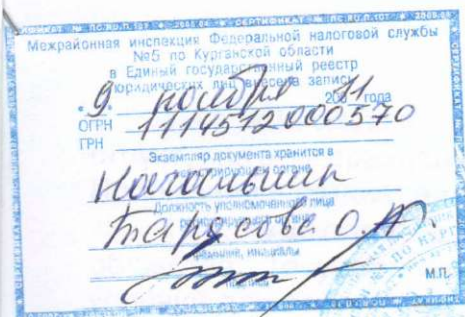 СЕРТИФИКАТ № ПС.RU.П.101
Межрайонная инспекция Федеральной налоговой службы
№5 по Курганской области
в Единый государственный реестр
юридических лиц внесена запись
«9» ноября 2011 года
ОГРН 1114512000570
ГРН
Экземпляр документа хранится в
регистрирующем органе
Начальник
Должность уполномоченного лица
регистрирующего органа
Тарасова О.А.
Фамилия, инициалы
подпись
М.П.